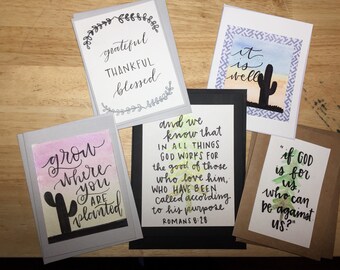 grateful
THANKFUL
blessed
it is
well
grow
where
you
ARE
planted
and we
know that
IN ALL THINGS
GOD WORKS FOR
the good of those
who love him,
WHO HAVE BEEN
called according
to his purpose
ROMANS 8:28
"If GOD
is for
us, who
can be
against
us?"